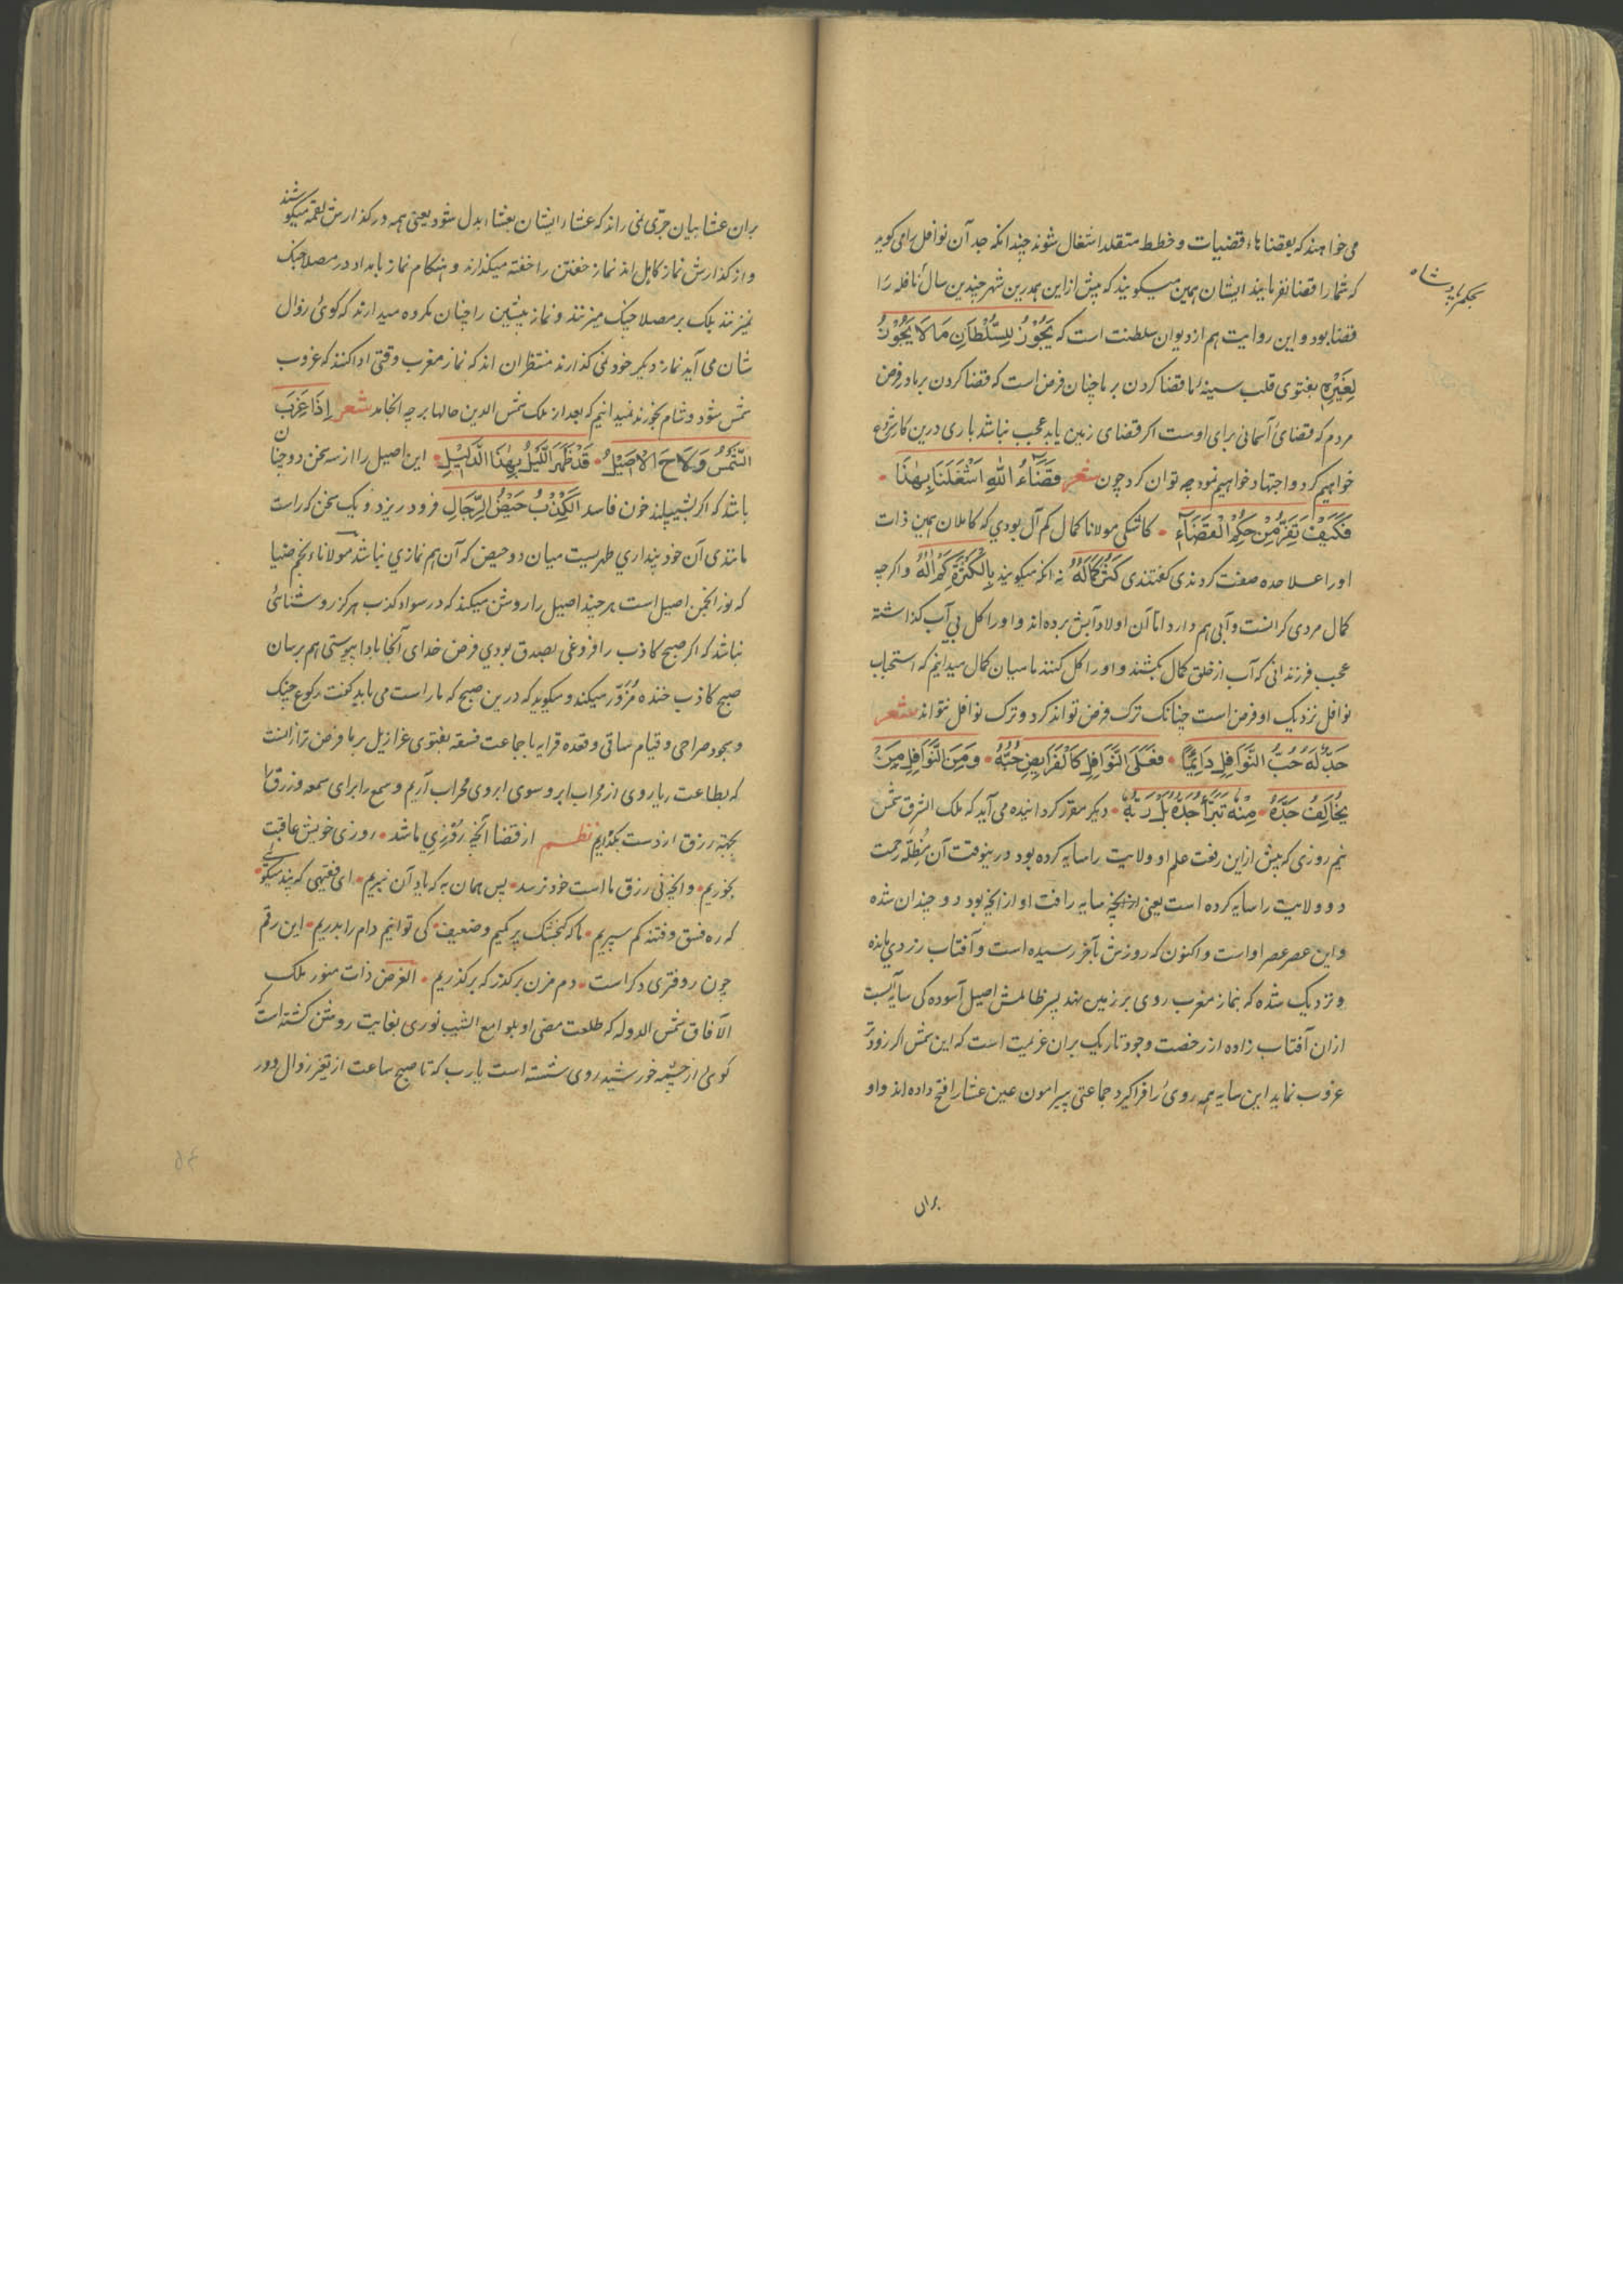 می خواهند که بقضاهاء قضیات و خطط متقلد اشتغال شوند چندانکه جد آن نوافل را می کوید
که شما را قضا نفرمایند ایشان همین میکویند که پیش ازاین همدرین شهر چندین سال نافله را
قضا بود و این روایت هم از دیوان سلطنت است که يَجُوْزُ لِلسُّلْطَانِ مَا لَا يَجُوْزُ
لِغَيْرِهِ بفتوی قلب سینه ما قضا کردن بر ما چنان فرض است که قضا کردن بر باد فرض
مردم که قضائ آسمانی برای اوست اکر قضای زمین یابد عجب نباشد باری درین کار شروع
خواهیم کرد و اجتهاد خواهیم نمود چه توان کرد چون شعر قَضَاءُ اللهِ اَشْغَلَنَا بِهٰذَا
فَكَيْفَ نَفِرُّ مِنْ حُكْمِ الْقَضَاءِ کاشکی مولانا کمال کم آل بودی که کاملان همین ذات
اورا علاحده صفت کردندی کفتندی کثر کماله نه انکه میکویند بالکثرة کم اله واکرچه
کمال مردی کرانست وآبی هم دارد اما آن اولاد آبش برده اند واورا کل بی آب کذاشته
عجب فرزندانی که آب از خلق کمال بکشند و اورا کل کنند ما سیان کمال میدانیم که استحباب
نوافل نزدیک او فرض است چنانک ترک فرض تواند کرد و ترک نوافل نتواند شعر
حَدٌّ لَهُ حُبُّ النَّوَافِلِ دَائِمًا فَعَلَى النَّوَافِلِ كَالْفَرَايِضِ حُبُّهُ وَمِنَ النَّوَافِلِ مَنْ
يُخَالِفُ حَدَّهُ مِنْهُ تَبَرَّأَ جَدُّهُ بَلْ رَبُّهُ دیکر مقرر کردانیده می آید که ملک الشرق شمس
نیم روزی که پیش ازاین رفعت علم او ولایت را سایه کرده بود درینوقت آن مُظِلّه رحمت
دو ولایت را سایه کرده است یعنی ازانچه سایه رافت او ازانچه بود دو چندان شده
واین عصر عصر اواست واکنون که روزش بآخر رسیده است وآفتاب زردی مانده
ونزدیک شده که بنماز مغرب روی بر زمین نهد پسر ظالمش اصیل آسوده کی سایه ایست
ازان آفتاب زاده از رخصت وجود تاریک بران عزیمت است که این شمس اکر زودتر
غروب نماید این سایه همه روی را فراکیرد جماعتی پیرامون عین عشا را فتح داده اند واو
بحکم پادشاه
بران
بران عشا بیان جرّی نمی راند که عشاء ایشان بعشاء بدل شود یعنی همه در کذارش لقمه میکوشند
و از کذارش نماز کاهل اند نماز خفتن را خفته میکذارند و هنکام نماز بامداد در مصلا چنک
نمیزنند بلک بر مصلا چنک میزنند و نماز پیشین را چنان مکروه میدارند که کوئ زوال
شان می آید نماز دیکر خود نمی کذارند منتظران اند که نماز مغرب وقتی ادا کنند که غروب
شمس شود و شام بخورند نمیدانیم که بعد از ملک شمس الدین حالها بر چه انجامد شعر اِذَا غَرَبَ
الشَّمْسُ وَ لَاحَ الْاَصِيْلُ قَدْ ظَهَرَ اللَّيْلُ بِهٰذَا الدَّلِيْلِ این اصیل را از سه سخن دو چنان
باشد که اکر بشیپلند خون فاسد اَلْكِذْبُ حَيْضُ الرِّجَالِ فرود ریزد و یک سخن که راست
مانندی آن خود پنداری طهریست میان دو حیض که آن هم نمازی نباشد مولاناء نجم ضیا
که نور انجمن اصیل است هر چند اصیل را روشن میکند که در سواد کذب هرکز روشنائی
نباشد که اکر صبح کاذب را فروغی بصدق بودی فرض خدای آنجا بادا پیوستی هم برسان
صبح کاذب خنده مُزَوّر میکند و میکوید که درین صبح که ما راست می باید کفت رکوع چنک
و سجود صراحی و قیام ساقی و قعده قرابه با جماعت فسقه بفتوی عزازیل بر ما فرض تر ازانست
که بطاعت ریا روی از محراب ابرو سوی ابروی محراب آریم و سمع را برای سمعه و زرق را
بجهت رزق از دست بکذاریم نظم از قضا آنچه روزی ما شد روزی خویش عاقبت
بخوریم وانچه نی رزق ما است خود نرسد پس همان به که یاد آن نبریم ای فقیهی که پند میکوئی
که ره فسق و فتنه کم سپریم ما که کنجشک پر کمیم و ضعیف کی توانیم دام را بدریم این رقم
چون ز دفتری دکر است دم مزن برکذر که برکذریم الغرض ذات منور ملک
الآفاق شمس الدوله که طلعت مضی او بلوامع الشیب نوری بغایت روشن کشته است که
کوئ از چشمه خورشید روی شسته است یارب که تا صبح ساعت از تغیر زوال دور